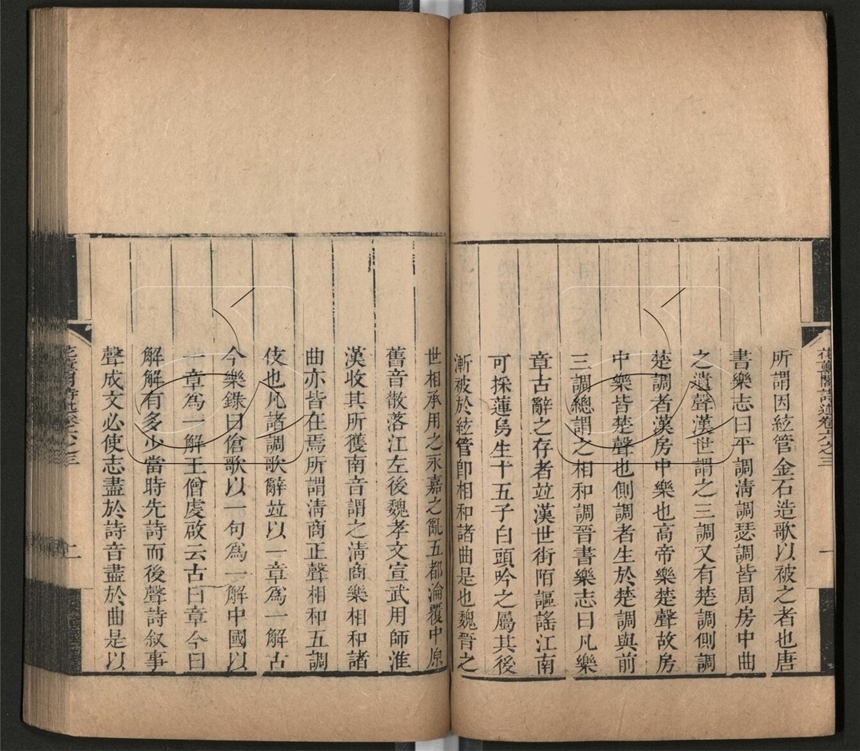 所謂因絃管金石造歌以被之者也唐
書樂志曰平調淸調瑟調皆周房中曲
之遺聲漢世謂之三調又有楚調側調
楚調者漢房中樂也高帝樂楚聲故房
中樂皆楚聲也側調者生於楚調與前
三調總謂之相和調晉書樂志曰凡樂
章古辭之存者竝漢世街陌謳謠江南
可採蓮烏生十五子白頭吟之屬其後
漸被於絃管卽相和諸曲是也魏晉之
世相承用之永嘉之亂五都淪覆中原
舊音散落江左後魏孝文宣武用師淮
漢收其所獲南音謂之淸商樂相和諸
曲亦皆在焉所謂淸商正聲相和五調
伎也凡諸調歌辭竝以一章爲一解古
今樂錄曰傖歌以一句爲一解中國以
一章爲一解王僧虔啟云古曰章今曰
解解有多少當時先詩而後聲詩叙事
聲成文必使志盡於詩音盡於曲是以